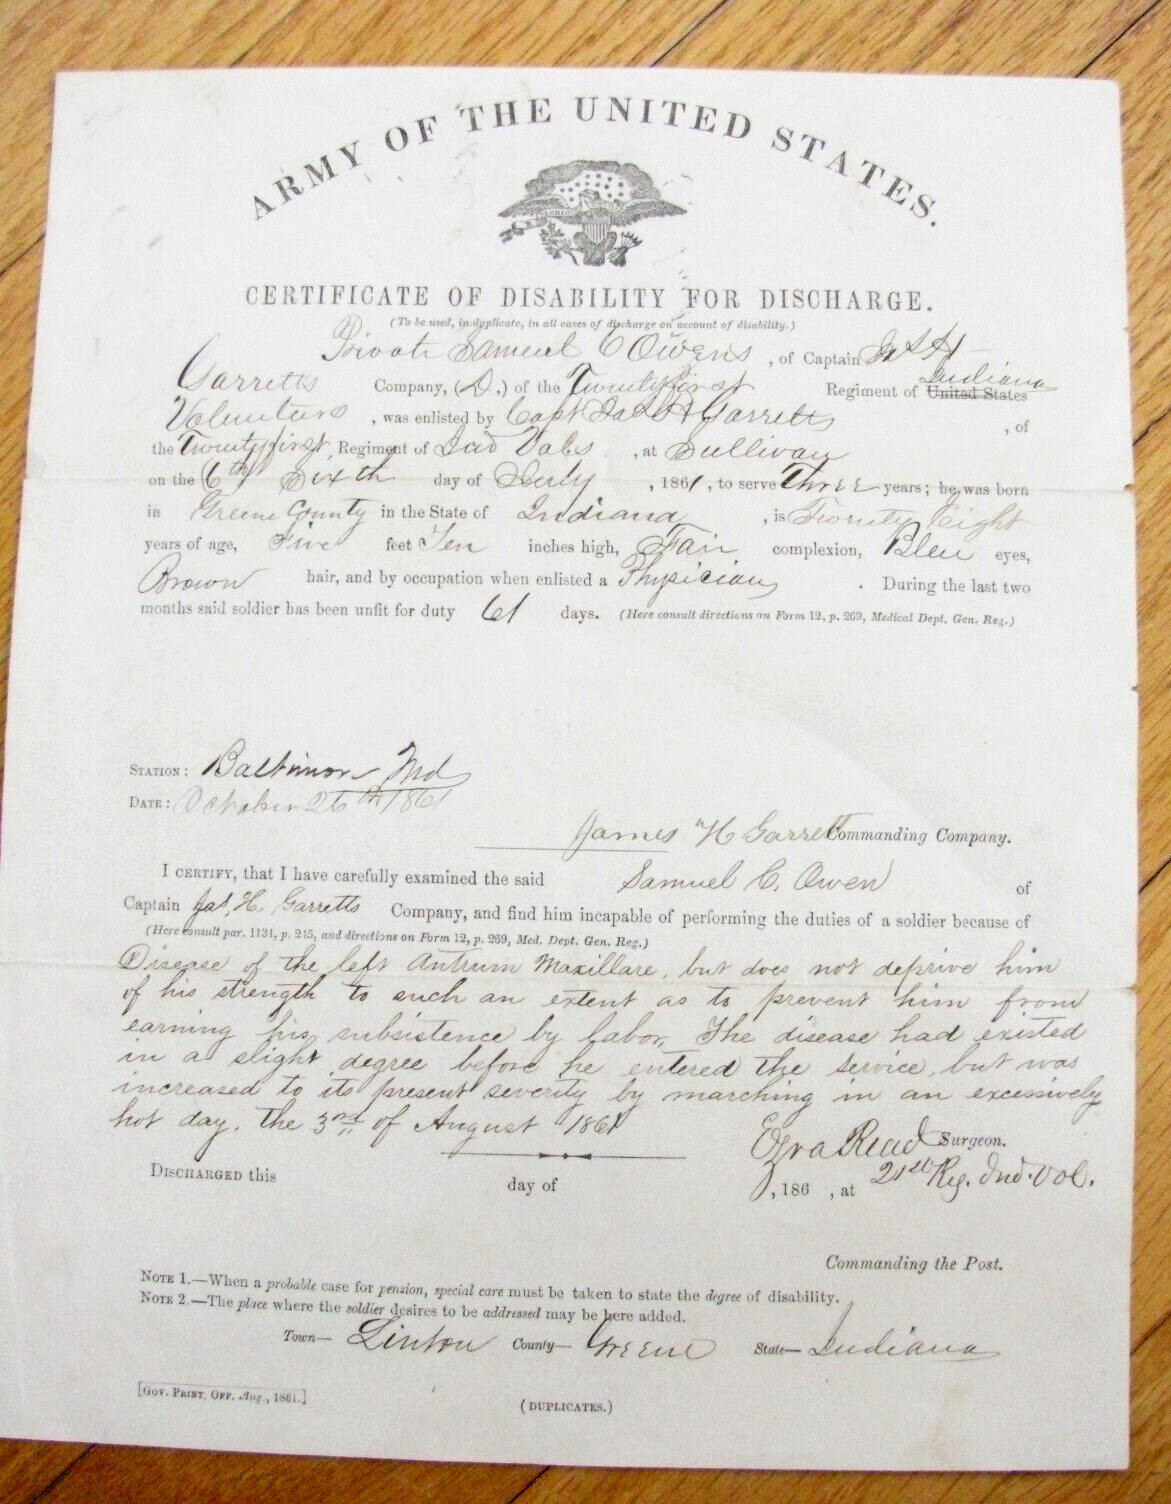 ARMY OF THE UNITED STATES.
CERTIFICATE OF DISABILITY FOR DISCHARGE.
(To be used, in duplicate, in all cases of discharge on account of disability.)
Private Samuel C Owens, of Captain Jas H
Garretts Company, (D,) of the Twenty first Regiment of United States Indiana
Volunteers, was enlisted by Capt Jas H Garretts, of
the Twenty first Regiment of Ind Vols, at Sullivan
on the (6th) Sixth day of July, 1861, to serve Three years; he was born
in Greene County in the State of Indiana, is Twenty Eight
years of age, Five feet Ten inches high, Fair complexion, Bleu eyes,
Brown hair, and by occupation when enlisted a Physician. During the last two
months said soldier has been unfit for duty 61 days. (Here consult directions on Form 12, p. 269, Medical Dept. Gen. Reg.)
STATION: Baltimore Md
DATE: October 26th 1861
James H Garrett Commanding Company.
I CERTIFY, that I have carefully examined the said Samuel C. Owen of
Captain Jas. H. Garretts Company, and find him incapable of performing the duties of a soldier because of
(Here consult par. 1134, p. 245, and directions on Form 12, p. 269, Med. Dept. Gen. Reg.)
Disease of the left Antrum Maxillare, but does not deprive him
of his strength to such an extent as to prevent him from
earning his subsistence by labor. The disease had existed
in a slight degree before he entered the service, but was
increased to its present severity by marching in an excessively
hot day. the 3rd of August 1861
Ezra Read Surgeon.
21st Reg. Ind. Vol.
DISCHARGED this day of , 186 , at
Commanding the Post.
NOTE 1.—When a probable case for pension, special care must be taken to state the degree of disability.
NOTE 2.—The place where the soldier desires to be addressed may be here added.
Town— Linton County— Greene State— Indiana
[GOV. PRINT. OFF. Aug., 1861.]
(DUPLICATES.)